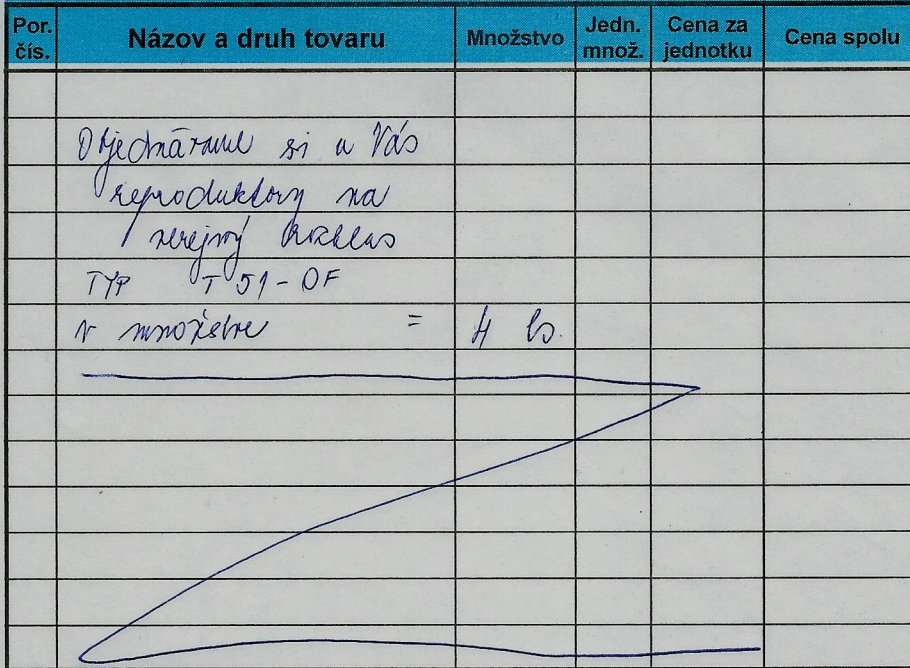 Por. čís. Názov a druh tovaru Množstvo Jedn. množ. Cena za jednotku Cena spolu
Objednávame si u Vás
reproduktory na
verejný rozhlas
TYP T 51-OF
v množstve = 4 ks.